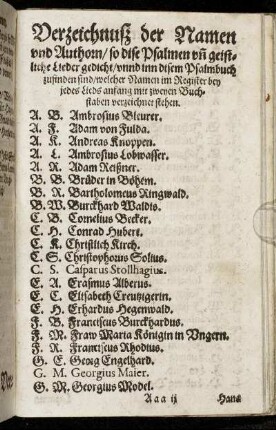 Verzeichnuß der Namen
vnd Authorn/ so dise Psalmen vñ geist-
liche Lieder gedicht/ vnnd inn disem Psalmbuch
zufinden sind/ welcher Namen im Register bey
jedes Lieds anfang mit zweyen Buch-
staben verzeichnet stehen.
A. B. Ambrosius Bleurer.
A. F. Adam von Fulda.
A. K. Andreas Knoppen.
A. L. Ambrosius Lobwasser.
A. R. Adam Reißner.
B. B. Brüder in Böhem.
B. R. Bartholomeus Ringwald.
B. W. Burckhard Waldis.
C. B. Cornelius Becker.
C. H. Conrad Hubert.
C. K. Christlich Kirch.
C. S. Christophorus Solius.
C. S. Casparus Stollhagius.
E. A. Erasmus Alberus.
E. C. Elisabeth Creutzigerin.
E. H. Erhardus Hegenwald.
F. B. Franciscus Burckhardus.
F. M. Fraw Maria Königin in Vngern.
F. R. Franciscus Rhodius.
G. E. Georg Engelhard.
G. M. Georgius Maier.
G. M. Georgius Model.
A a a ij Hans